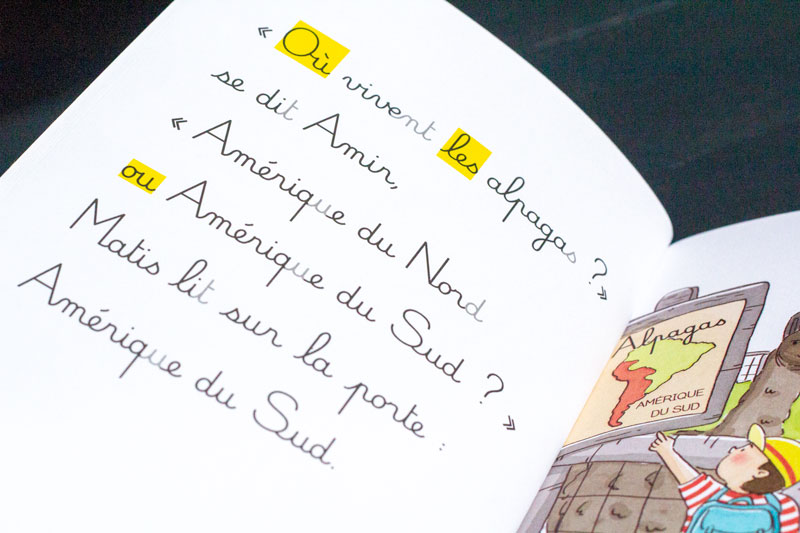 « Où vivent les alpagas ? »
se dit Amir,
« Amérique du Nord
ou Amérique du Sud ? »
Matis lit sur la porte :
Amérique du Sud.
Alpagas
AMÉRIQUE
DU SUD